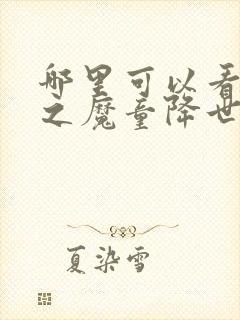 哪里可以看
之魔童降世
夏染雪